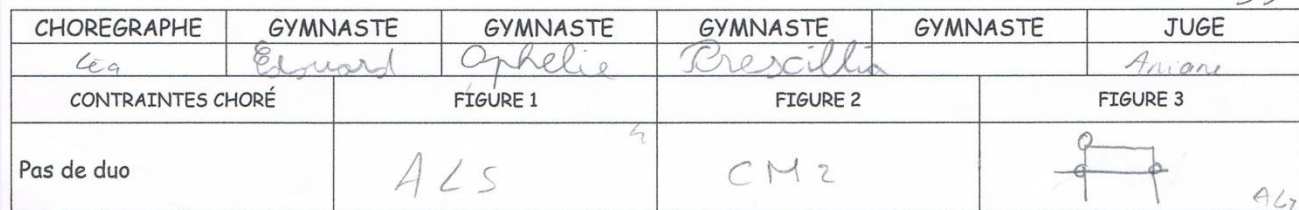 CHOREGRAPHE GYMNASTE GYMNASTE GYMNASTE GYMNASTE JUGE
Léa Edouard Ophelie Prescillia Ariane
CONTRAINTES CHORÉ FIGURE 1 FIGURE 2 FIGURE 3
Pas de duo ALS CM2